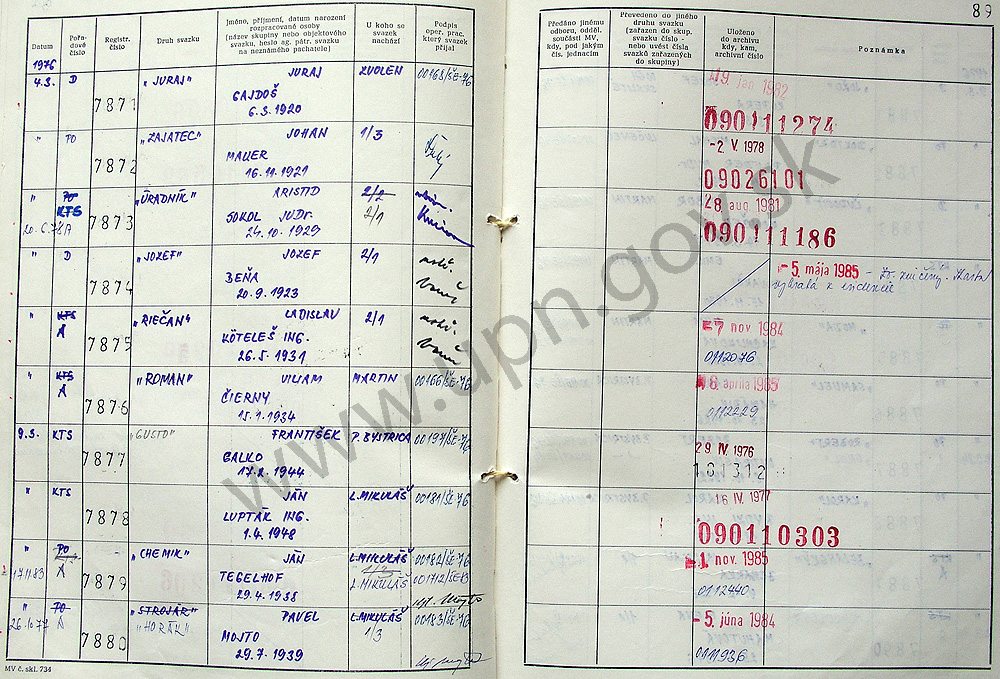 89
Datum
Pořadové číslo
Registr. číslo
Druh svazku
Jméno, příjmení, datum narození
rozpracované osoby
(název skupiny nebo objektového
svazku, heslo ag. pátr. svazku
na neznámého pachatele)
U koho se
svazek
nachází
Podpis
oper. prac.
který svazek
přijal
Předáno jinému
odboru, odděl.
součásti MV,
kdy, pod jakým
čís. jednacím
Převedeno do jiného
druhu svazku
(zařazen do skup.
svazku číslo -
nebo uvést čísla
svazků zařazených
do skupiny)
Uloženo
do archivu
kdy, kam,
archivní číslo
Poznámka
1976
4.3. D 7871 „JURAJ" JURAJ ZVOLEN 00163/ŠE-76
GAJDOŠ
6.3.1920
19. jan 1982
090111274
" PO 7872 „ZAJATEC" JOHAN 1/3
MAUER
16.11.1921
-2 V. 1978
09026101
" PO KTS 7873 „ÚRADNÍK" ARISTID 2/2
SOKOL JUDr. 2/1
24.10.1929
28. aug 1981
090111186
" D 7874 „JOZEF" JOZEF 2/1
BEŇA
20.9.1923
- 5. mája 1985
" KTS A 7875 „RIEČAN" LADISLAV 2/1
KÖTELEŠ ING.
26.5.1931
-7 nov 1984
0112076
" KTS A 7876 „ROMAN" VILIAM MARTIN 00166/ŠE-76
ČIERNY
15.1.1934
6. apríla 1985
0112229
9.3. KTS 7877 „GUSTO" FRANTIŠEK P. BYSTRICA 00197/ŠE-76
GALKO
17.2.1944
29 IV. 1976
101312
" KTS 7878 JÁN L.MIKULÁŠ 00181/ŠE-76
LUPTÁK ING.
1.4.1948
16 IV. 1977
090110303
" PO A 7879 „CHEMIK" JÁN L.MIKULÁŠ 00182/ŠE-76
TEGELHOF L.MIKULÁŠ
29.4.1938
-1. nov. 1985
0112440
" PO A 7880 „STROJÁR" PAVEL L.MIKULÁŠ 00183/ŠE-76
26.10.77 „HORÁK" 1/3
MOJTO
29.7.1939
- 5. júna 1984
0111936
MV č. skl. 734
www.upn.gov.sk